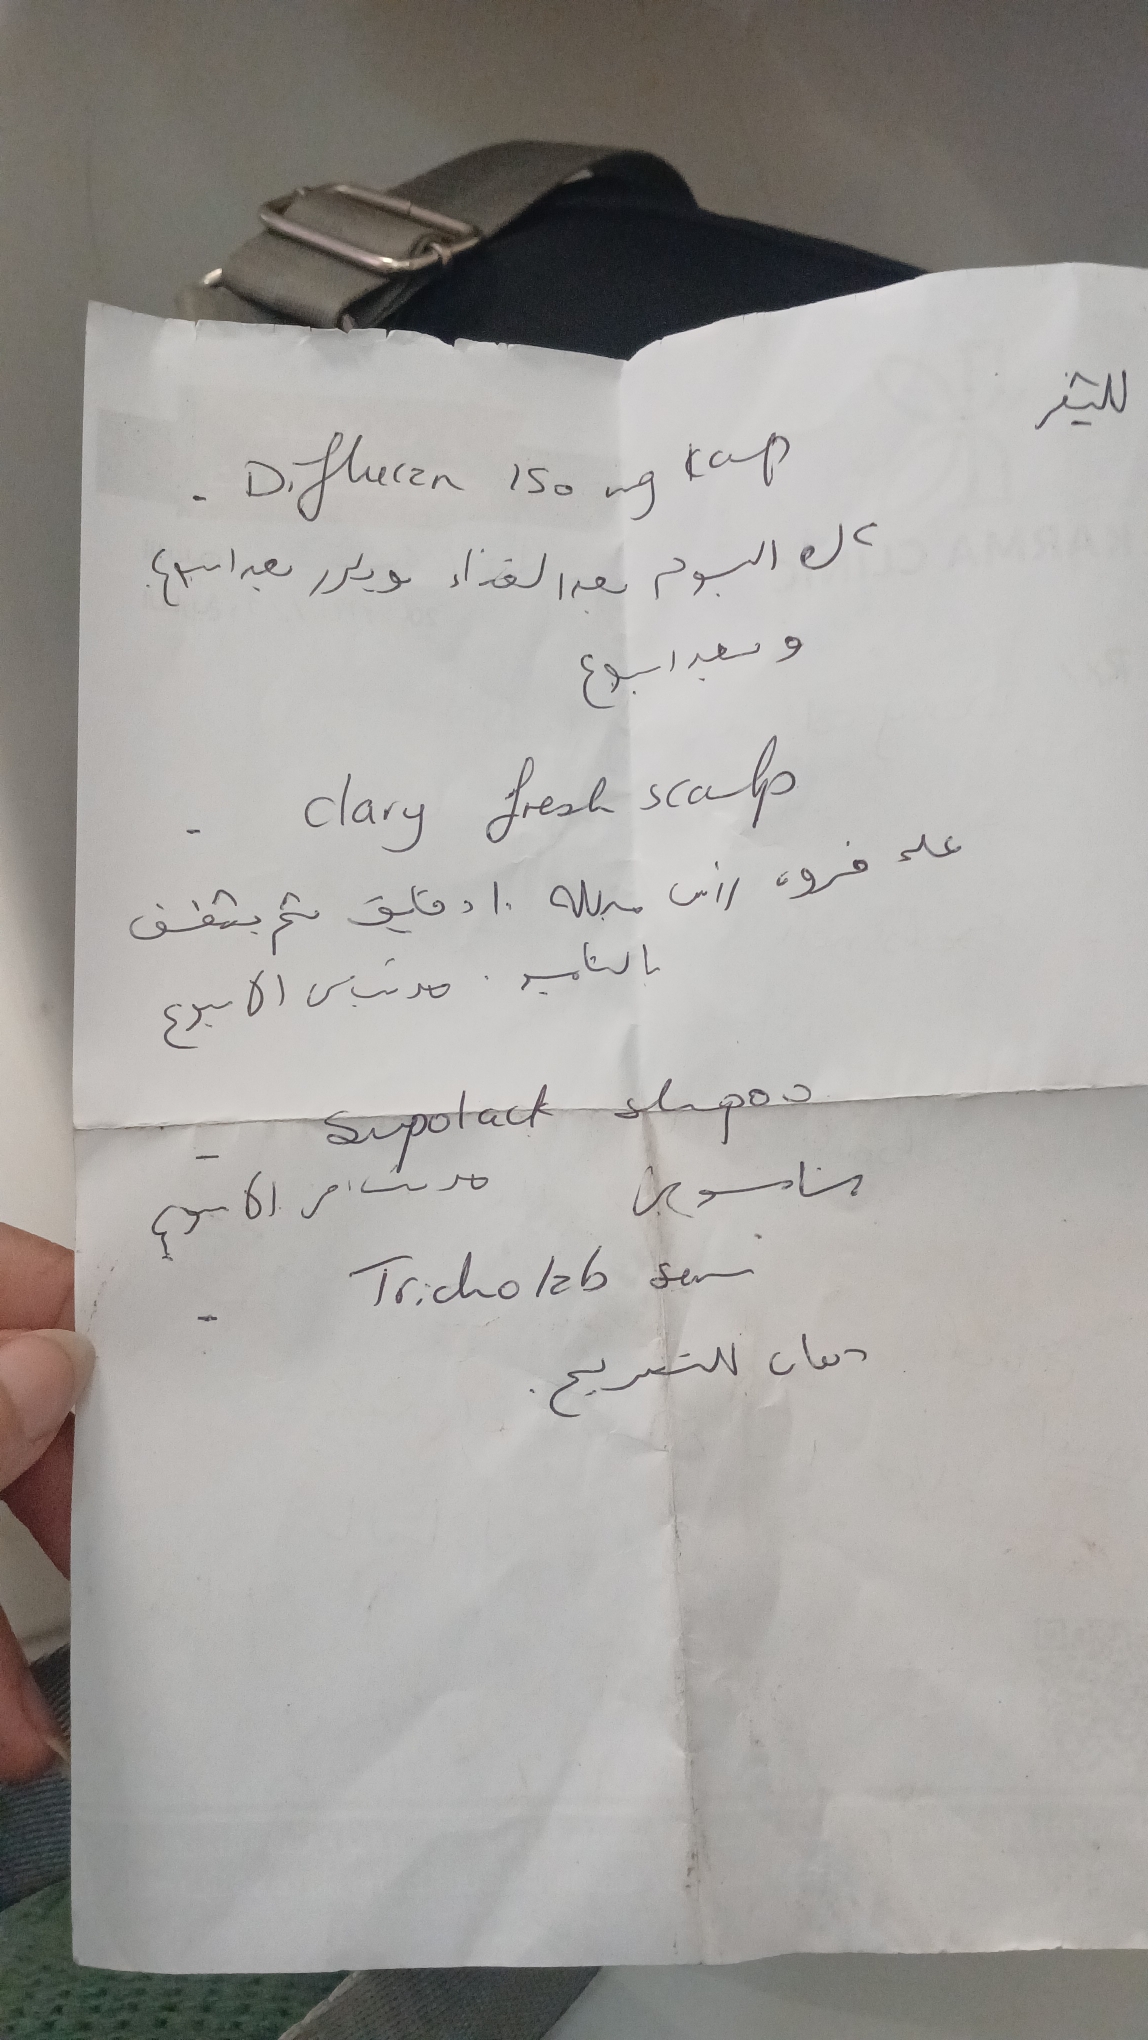 للشعر
- Diflucan 150 mg cap
كل اليوم بعد الغذاء ويكرر بعد اسبوع
وبعد اسبوع
- Clary fresh scalp
على فروة رأس مبلله 10 دقايق ثم يشطف
بالشامبو . مرتين الاسبوع
- Supolack shapoo
الاسبوع
- Tricholab
دهان للتسريح.